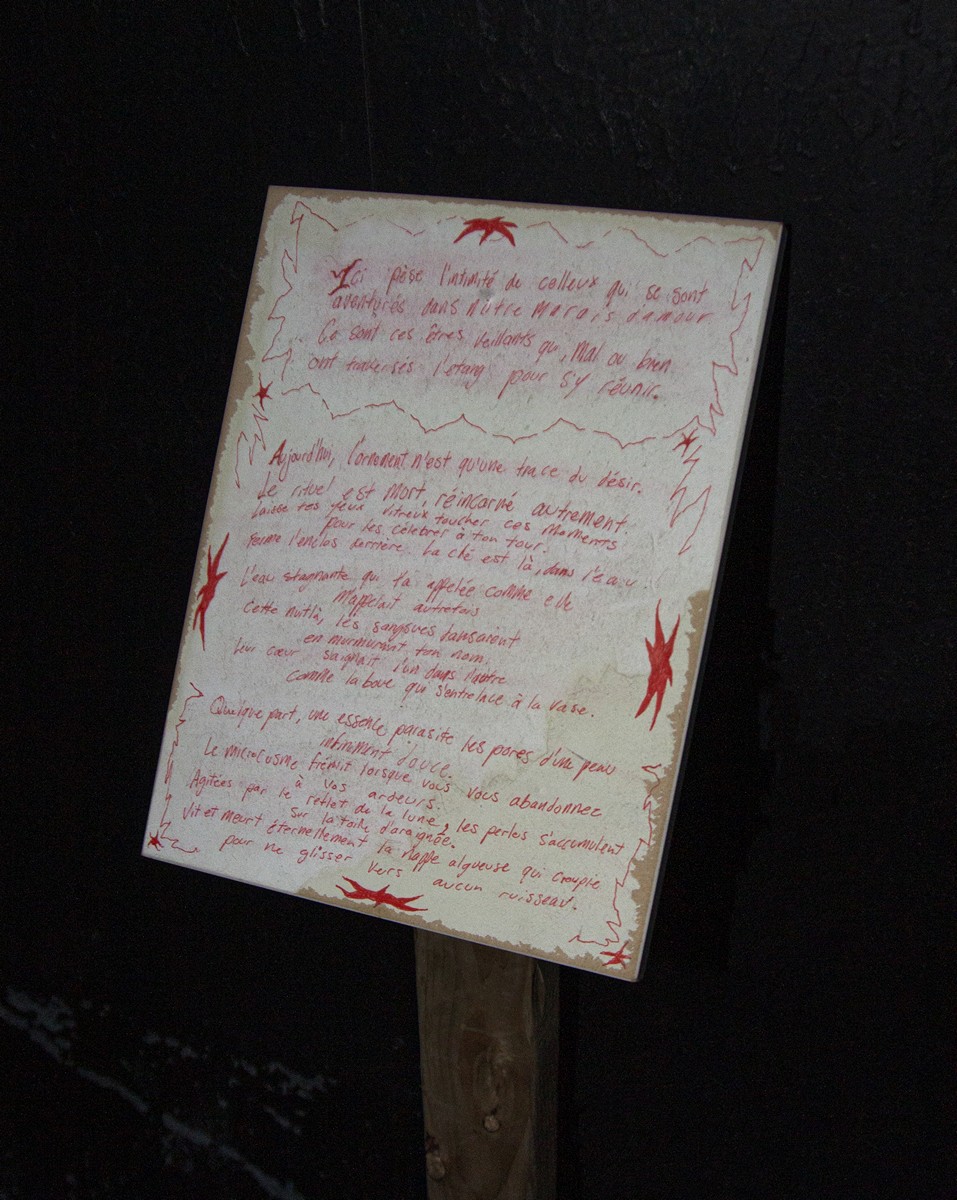 Ici pèse l'intimité de celleux qui se sont
aventurés dans nutre marais d'amour
Ce sont ces êtres veillants qui, mal ou bien
ont traversés l'étang pour s'y réunir.
Aujourd'hui, l'ornement n'est qu'une trace du désir.
Le rituel est mort, réincarné autrement.
Laisse tes yeux vitreux toucher ces moments
pour les célébrer à ton tour.
Ferme l'enclos derrière. La clé est là, dans l'eau
L'eau stagnante qui t'a appelée comme elle
m'appelait autrefois
Cette nuit là, les sangsues dansaient
en murmurant ton nom.
Leur cœur saignait l'un dans l'autre
comme la boue qui s'entrelace à la vase.
Quelque part, une essence parasite les pores d'une peau
infiniment douce.
Le microcosme frémit lorsque vous vous abandonnez
à vos ardeurs.
Agitées par le reflet de la lune, les perles s'accumulent
sur la toile d'araignée.
Vit et meurt éternellement la nappe algueuse qui croupie
pour ne glisser vers aucun ruisseau.